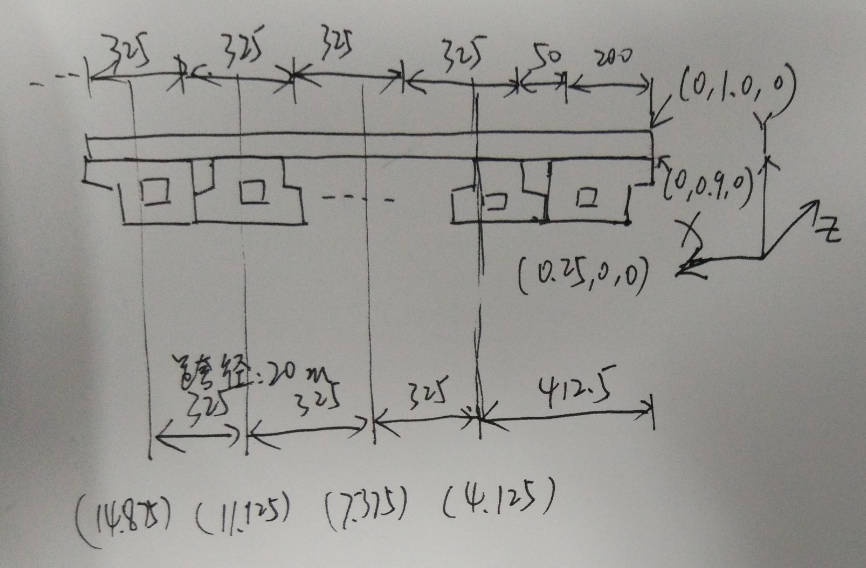 325 325 325 325 50 200
(0,1.0,0)
Y
(0,0.9,0)
Z
X
(0.25,0,0)
跨径:20m
325 325 325 412.5
(14.875) (11.125) (7.375) (4.125)